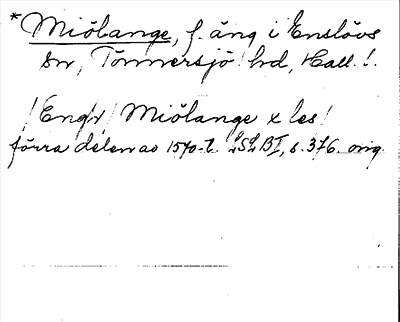 *Miölange, f. äng i Enslövs
sn, Tönnersjö hd, Hall. l.
/Engh/ Miölange x les/
förra delen av 1570-t. LSLBI, s. 376. orig.